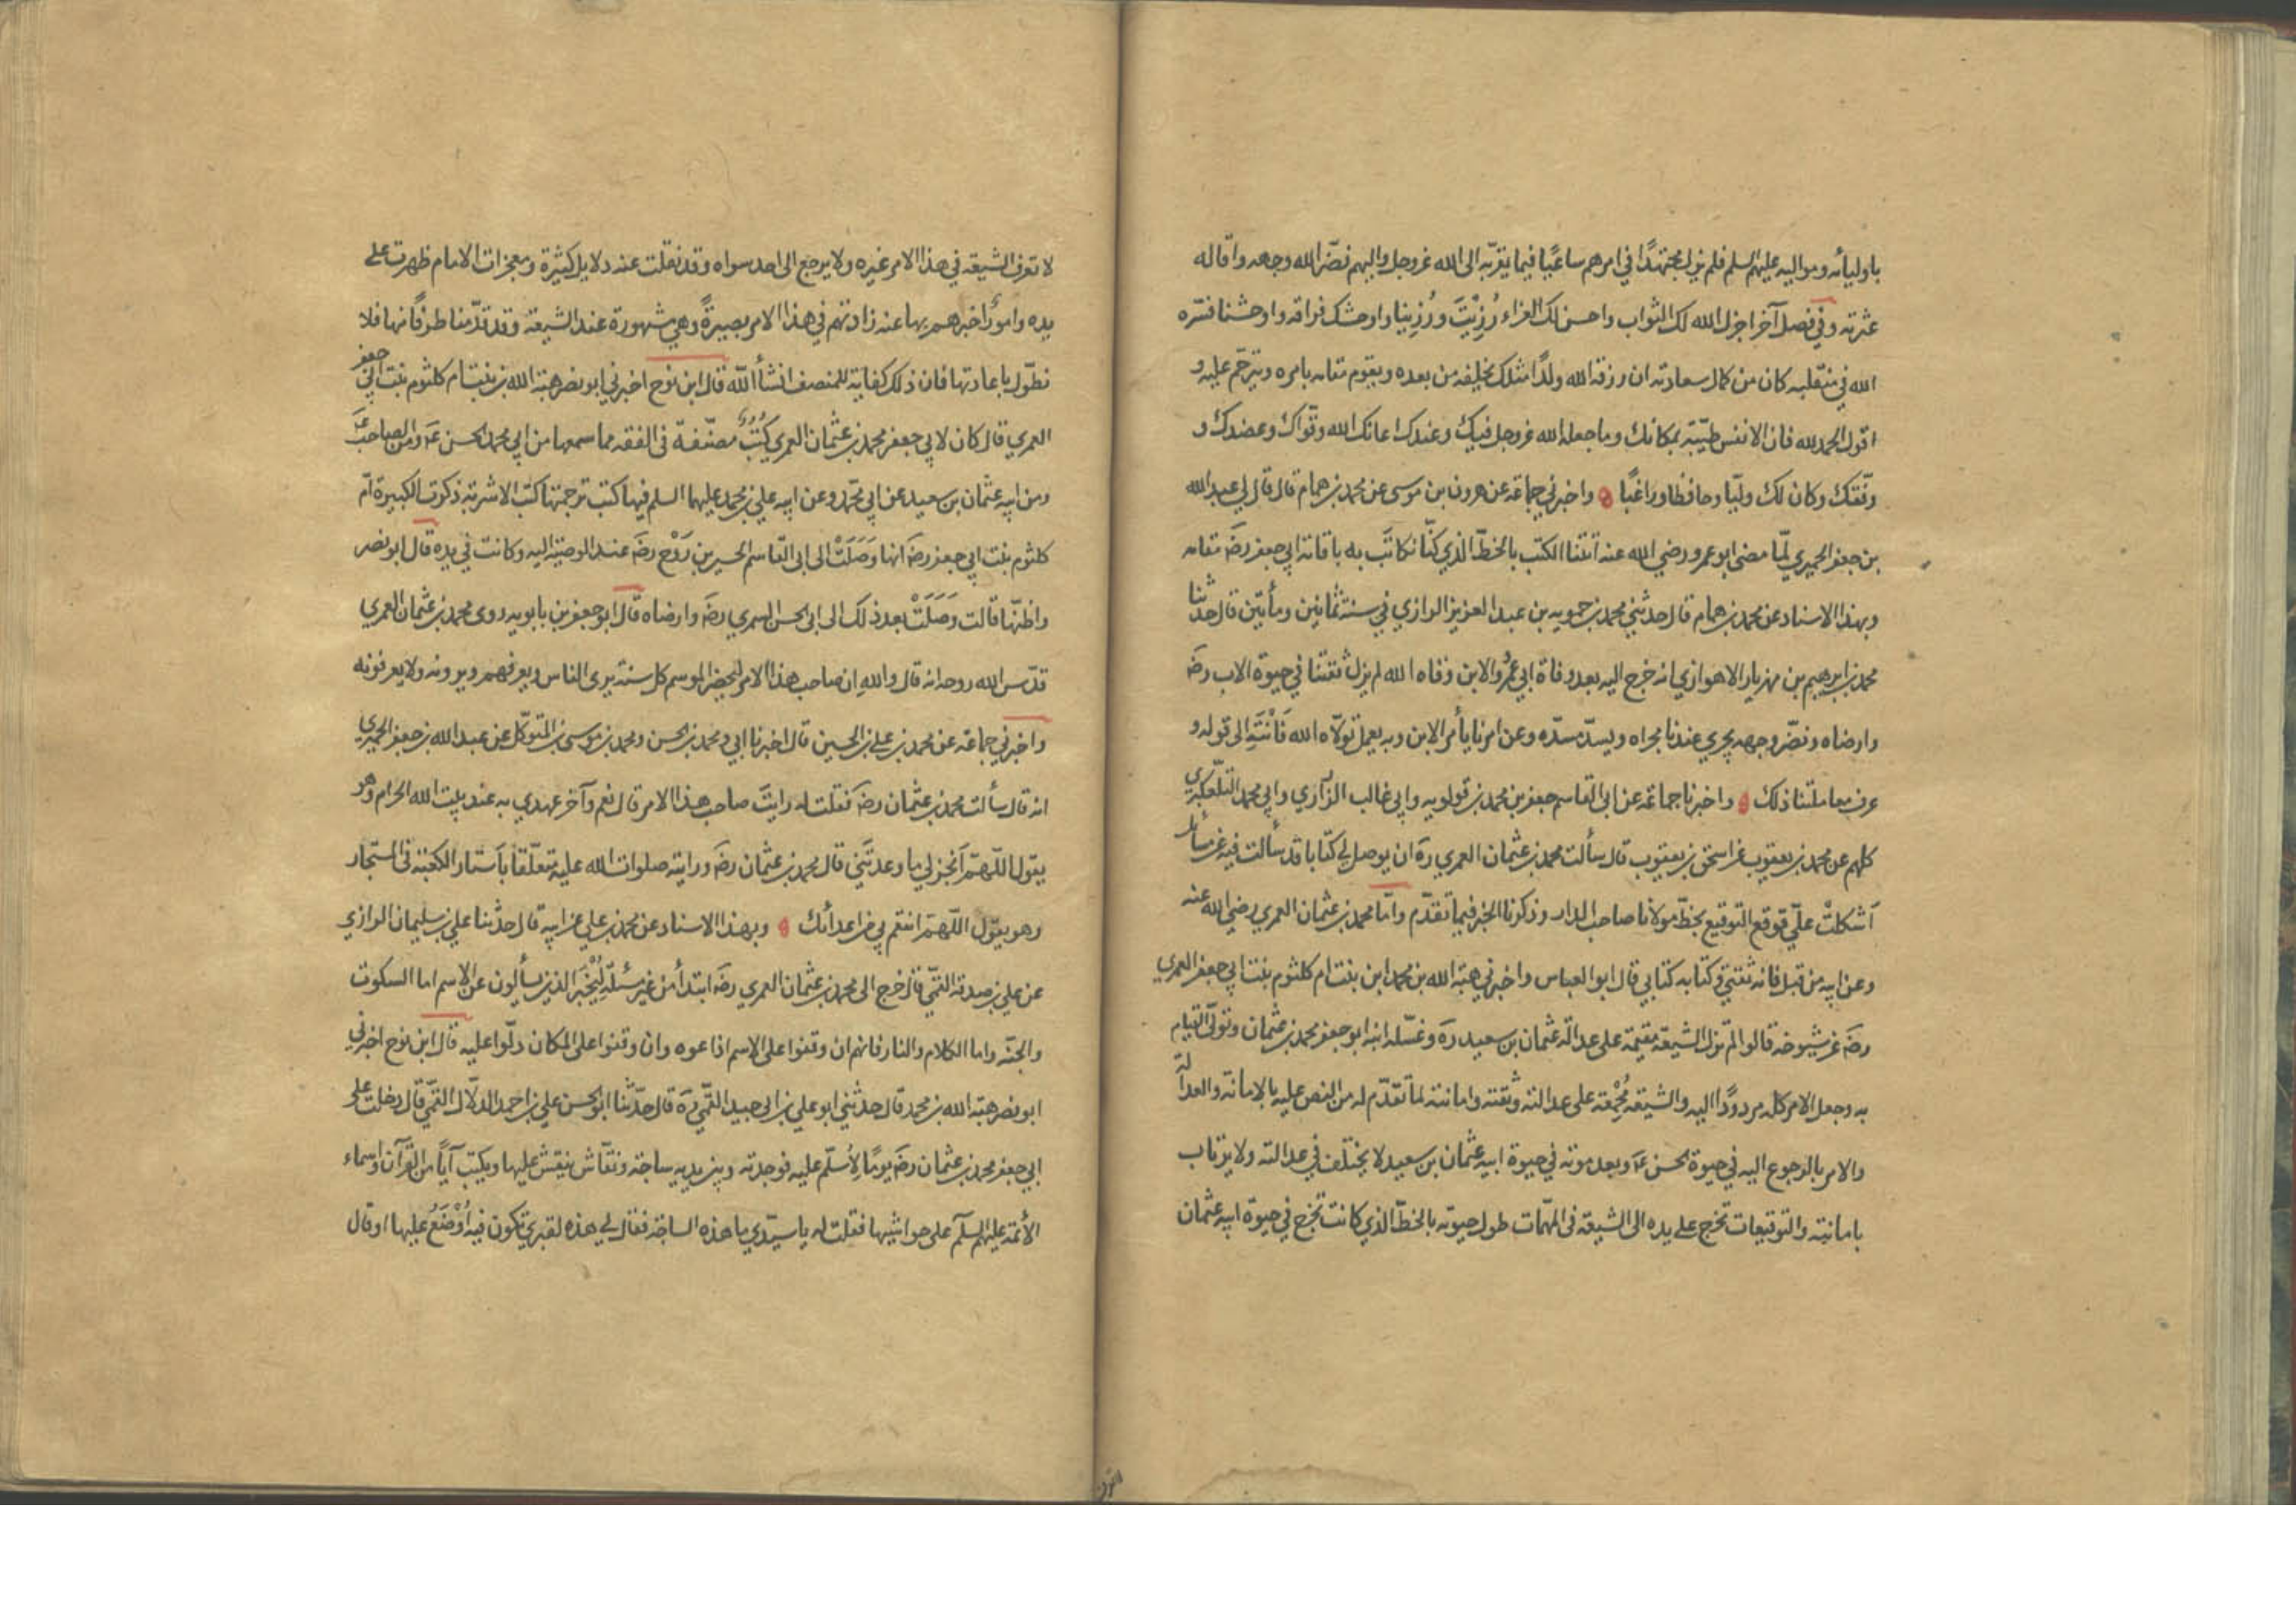 باوليائه ومواليه عليهم السلم فلم يزل مجتهدًا في امرهم ساعيًا فيما يقربه الى الله عزوجل واليهم نضّر الله وجهه واقاله
عثرته وفي فصل آخر اجزل الله لك الثواب واحسن لك العزاء رُزِئْتَ ورُزِينا واوحشك فراقه واوحشنا فسّره
الله في منقلبه كان من كمال سعادته ان رزقه الله ولدًا مثلك يخلفه من بعده ويقوم مقامه بامره ويترحّم عليه و
اقول الحمد لله فان الانفس طيّبة بمكانك وما جعله الله عزوجل فيك وعندك اعانك الله وقوّاك وعضدك و
وفّقك وكان لك وليّا وحافظا وراعيًا ۞ واخبرني جماعة عن هرون بن موسى عن محمد بن همام قال قال لي عبدالله
بن جعفر الحميري لمّا مضى ابو عمرو رضي الله عنه أتتنا الكتب بالخطّ الذي كنّا نكاتَب به باقامة ابي جعفر رضَ مقامه
وبهذا الاسناد عن محمد بن همام قال حدثني محمد بن حمويه بن عبد العزيز الرازي في سنة ثمانين ومأتين قال حدثنا
محمد بن ابرهيم بن مهزيار الاهوازي انه خرج اليه بعد وفاة ابي عمرو والابن وقاه الله لم يزل ثقتنا في حيوة الاب رضَ
وارضاه ونضّر وجهه يجري عندنا مجراه ويسدّ مسدّه وعن امرنا يأمر الابن وبه يعمل تولّاه الله فَانْتَهِ الى قوله و
عرف معاملتنا ذلك ۞ واخبرنا جماعة عن ابي القاسم جعفر بن محمد بن قولويه وابي غالب الزراري وابي محمد التلّعكبري
كلهم عن محمد بن يعقوب عن اسحق بن يعقوب قال سألت محمد بن عثمان العمري ره ان يوصل لي كتابا قد سألت فيه عن مسائل
أشكلتْ عليّ فوقع التوقيع بخطّ مولانا صاحب الدار وذكرنا الخبر فيما تقدّم وامّا محمد بن عثمان العمري رضي الله عنه
وعن ابيه من قبل فانه ثقتي وكتابه كتابي قال ابو العباس واخبرني هبة الله بن محمد ابن بنت ام كلثوم بنت ابي جعفر العمري
رضَ عن شيوخه قالوا لم تزل الشيعة مقيمة على عدالة عثمان بن سعيد ره وغسّله ابنه ابو جعفر محمد بن عثمان وتولّى القيام
به وجعل الامر كله مردودًا اليه والشيعة مُجْمِعة على عدالته وثقته وامانته لما تقدّم له من النص عليه بالامانة والعدالة
والامر بالرجوع اليه في حيوة الحسن عَ وبعد موته في حيوة ابيه عثمان بن سعيد لا يختلف في عدالته ولا يرتاب
بامانته والتوقيعات تخرج على يده الى الشيعة في المهمّات طول حيوته بالخطّ الذي كانت تخرج في حيوة ابيه عثمان
لا تعرف الشيعة في هذا الامر غيره ولا يرجع الى احد سواه وقد نقلت عنه دلايل كثيرة ومعجزات الامام ظهرت على
يده وامورٌ اخبرهم بها عنه زادتهم في هذا الامر بصيرةً وهي مشهورة عند الشيعة وقد قدّمنا طرفًا منها فلا
نطوّل باعادتها فان ذلك كفاية للمنصف انشأ الله قال ابن نوح اخبرني ابو نصر هبة الله بن بنت ام كلثوم بنت ابي جعفر
العمري قال كان لابي جعفر محمد بن عثمان العمري كُتُبٌ مصنّفة في الفقه مما سمعها من ابي محمد الحسن عَ ومن الصاحب عَ
ومن ابيه عثمان بن سعيد عن ابي محمد وعن ابيه علي بن محمد عليهما السلم فيها كتب ترجمتها كتب الاشربة ذكرت الكبيرة ام
كلثوم بنت ابي جعفر رضَ انها وَصَلَتْ الى ابي القاسم الحسين بن رَوْح رضَ عند الوصيّة اليه وكانت في يده قال ابو نصر
واظنّها قالت وَصَلَتْ بعد ذلك الى ابي الحسن السمري رضَ وارضاه قال ابو جعفر بن بابويه روى محمد بن عثمان العمري
قدّس الله روحه انه قال والله ان صاحب هذا الامر ليحضر الموسم كل سنة يرى الناس ويعرفهم ويرونه ولا يعرفونه
واخبرني جماعة عن محمد بن علي بن الحسين قال اخبرنا ابي ومحمد بن الحسن ومحمد بن موسى بن المتوكّل عن عبد الله بن جعفر الحميري
انه قال سألت محمد بن عثمان رضَ فقلت له رايتَ صاحب هذا الامر قال نعم وآخر عهدي به عند بيت الله الحرام وهو
يقول اللّهمّ أنجز لي ما وعدتَني قال محمد بن عثمان رضَ ورايته صلوات الله عليه متعلّقا بأستار الكعبة في المستجار
وهو يقول اللّهمّ انتقم بي من اعدائك ۞ وبهذا الاسناد عن محمد بن علي عن ابيه قال حدّثنا علي بن سليمان الرازي
عن علي بن صدقة القمّي قال خرج الى محمد بن عثمان العمري رضَ ابتدأ من غير مسئلة لِيُخْبَر الذين يسألون عن الاسم اما السكوت
والجنّة واما الكلام والنار فانهم ان وقفوا على الاسم اذاعوه وان وقفوا على المكان دلّوا عليه قال ابن نوح اخبرني
ابو نصر هبة الله بن محمد قال حدثني ابو علي بن ابي جيد القمّي رَه قال حدّثنا ابو الحسن علي بن احمد الدلّال القمّي قال دخلت على
ابي جعفر محمد بن عثمان رضَ يومًا لأسلّم عليه فوجدته وبين يديه ساجة ونقّاش ينقش عليها ويكتب آيًا من القرآن واسماء
الأئمة عليهم السلم على حواشيها فقلت له يا سيّدي ما هذه الساجة فقال لي هذه لقبري تكون فيه أوْضَعُ عليها او قال